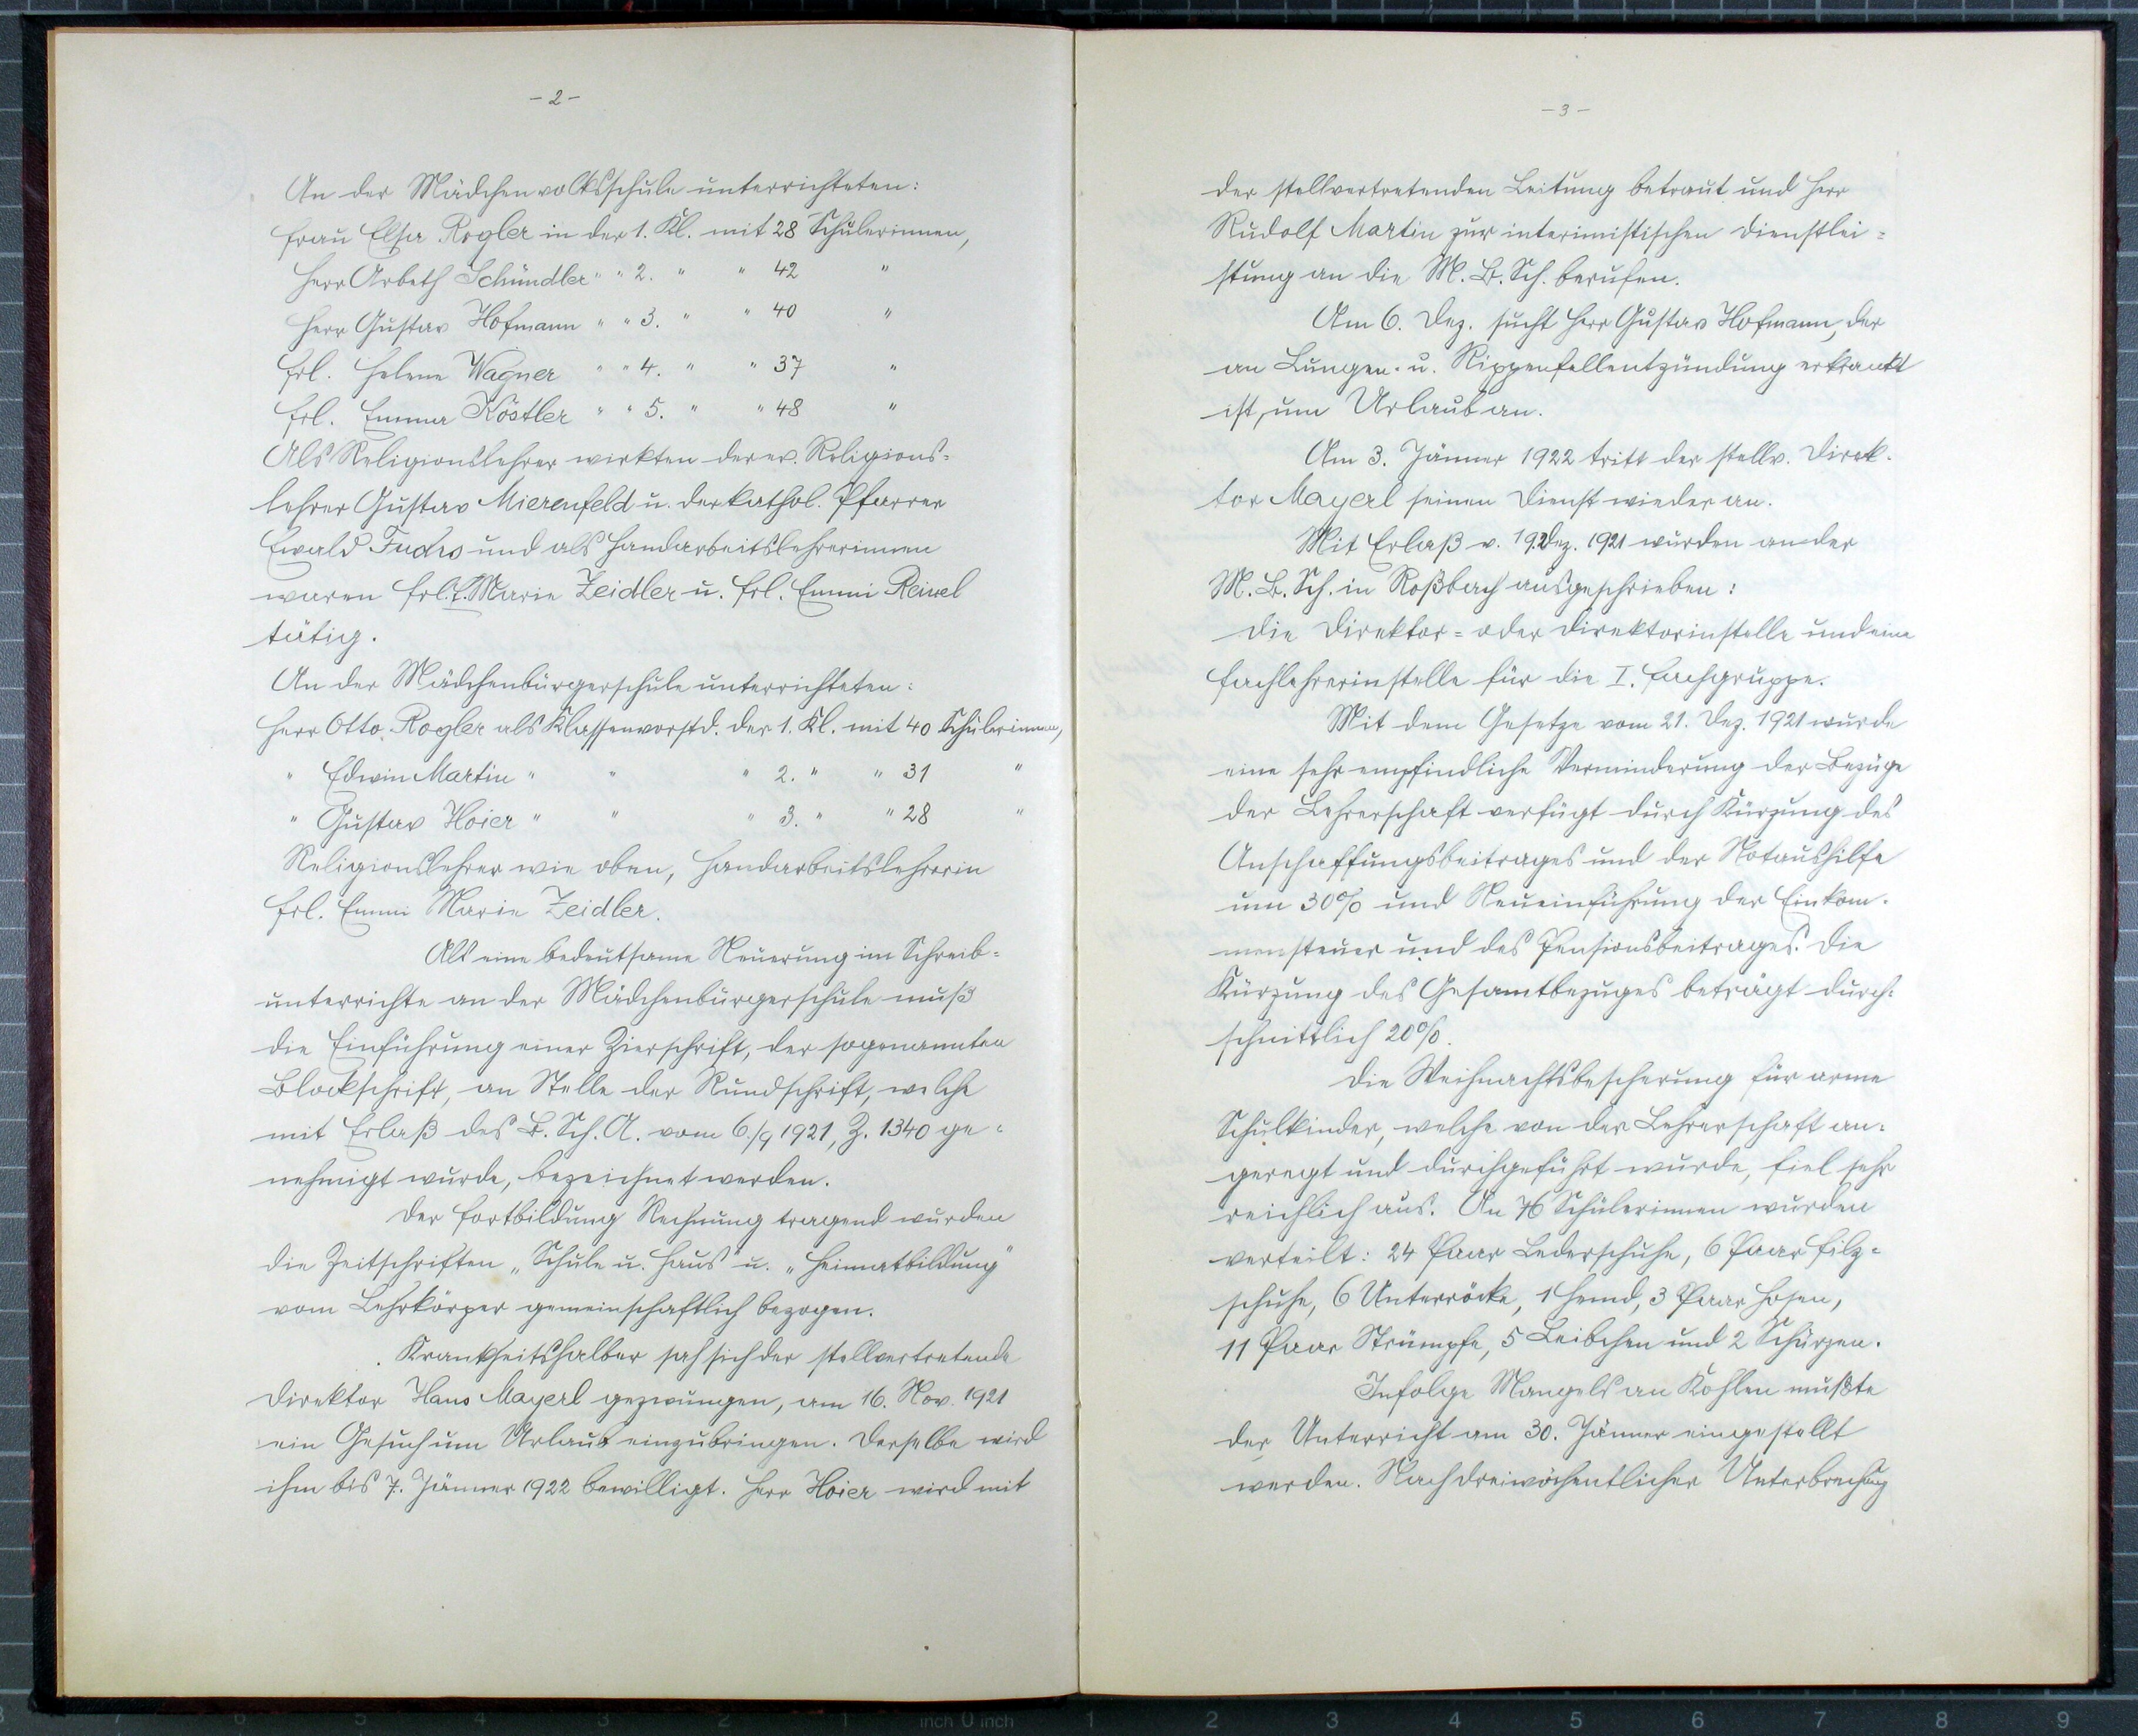 - 2 -
An der Mädchenvolksschule unterrichteten:
Frau Elsa Rogler in der 1. Kl. mit 28 Schülerinnen,
Herr Arbeth Schündler " " 2. " " 42 "
Herr Gustav Hofmann " " 3. " " 40 "
Frl. Helene Wagner " " 4. " " 37 "
Frl. Emma Köstler " " 5. " " 48 "
Als Religionslehrer wirkten der ev. Religions=
lehrer Gustav Mierenfeld u. der kathol. Pfarrer
Ewald Fuchs und als Handarbeitslehrerinnen
waren Frl. Marie Zeidler u. Frl. Emmi Reiwel
tätig.
An der Mädchenbürgerschule unterrichteten:
Herr Otto Rogler als Klassenvorstd. der 1. Kl. mit 40 Schülerinnen,
" Edwin Martin " " " 2. " " 31 "
" Gustav Hoier " " " 3. " " 28 "
Religionslehrer wie oben, Handarbeitslehrerin
Frl. Emmi Marie Zeidler.
Als eine bedeutsame Neuerung im Schreib=
unterrichte an der Mädchenbürgerschule muß
die Einführung einer Zierschrift, der sogenannten
Blockschrift, an Stelle der Rundschrift, welche
mit Erlaß des B. Sch. A. vom 6./9 1921, Z. 1340 ge=
nehmigt wurde, bezeichnet werden.
Der Fortbildung Rechnung tragend wurden
die Zeitschriften „Schule u. Haus" u. „Heimatbildung"
vom Lehrkörper gemeinschaftlich bezogen.
Krankheitshalber sah sich der stellvertretende
Direktor Hans Mayerl gezwungen, am 16. Nov. 1921
ein Gesuch um Urlaub einzubringen. Derselbe wird
ihm bis 7. Jänner 1922 bewilligt. Herr Hoier wird mit
- 3 -
der stellvertretenden Leitung betraut und Herr
Rudolf Martin zur interimistischen Dienstlei=
stung an die M. B. Sch. berufen.
Am 6. Dez. sucht Herr Gustav Hofmann, der
an Lungen- u. Rippenfellentzündung erkrankt
ist, um Urlaub an.
Am 3. Jänner 1922 tritt der stellv. Direk-
tor Mayerl seinen Dienst wieder an.
Mit Erlaß v. 19. Dez. 1921 wurden an der
M. B. Sch. in Roßbach ausgeschrieben:
die Direktor= oder Direktorinstelle und eine
Fachlehrerinstelle für die I. Fachgruppe.
Mit dem Gesetze vom 21. Dez. 1921 wurde
eine sehr empfindliche Verminderung der Bezüge
der Lehrerschaft verfügt durch Kürzung des
Anschaffungsbeitrages und der Notaushilfe
um 30% und Neueinführung der Einkom-
mensteuer und des Pensionsbeitrages. Die
Kürzung des Gesamtbezuges beträgt durch-
schnittlich 20%.
Die Weihnachtsbescherung für arme
Schulkinder, welche von der Lehrerschaft an-
geregt und durchgeführt wurde, fiel sehr
reichlich aus. An 76 Schülerinnen wurden
verteilt: 24 Paar Lederschuhe, 6 Paar Filz=
schuhe, 6 Unterröcke, 1 Hemd, 3 Paar Hosen,
11 Paar Strümpfe, 5 Leibchen und 2 Schürzen.
Infolge Mangels an Kohlen mußte
der Unterricht am 30. Jänner eingestellt
werden. Nach dreiwöchentlicher Unterbrechung
inch 0 inch
7 6 5 4 3 2 1 1 2 3 4 5 6 7 8 9